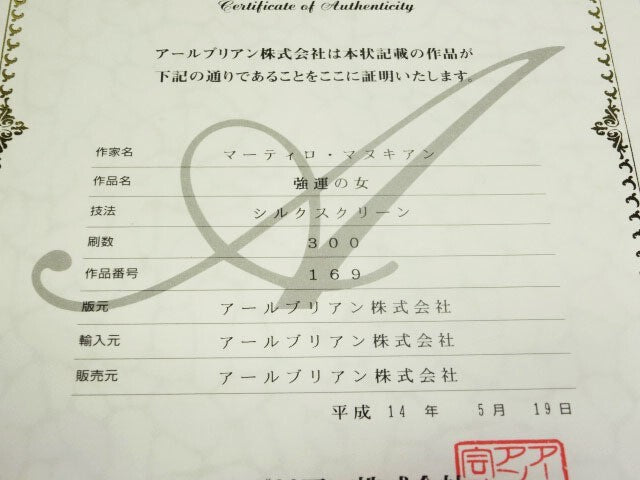 Certificate of Authenticity
アールブリアン株式会社は本状記載の作品が
下記の通りであることをここに証明いたします。
作家名 マーティロ・マヌキアン
作品名 強運の女
技法 シルクスクリーン
刷数 300
作品番号 169
版元 アールブリアン株式会社
輸入元 アールブリアン株式会社
販売元 アールブリアン株式会社
平成 14 年 5 月 19 日